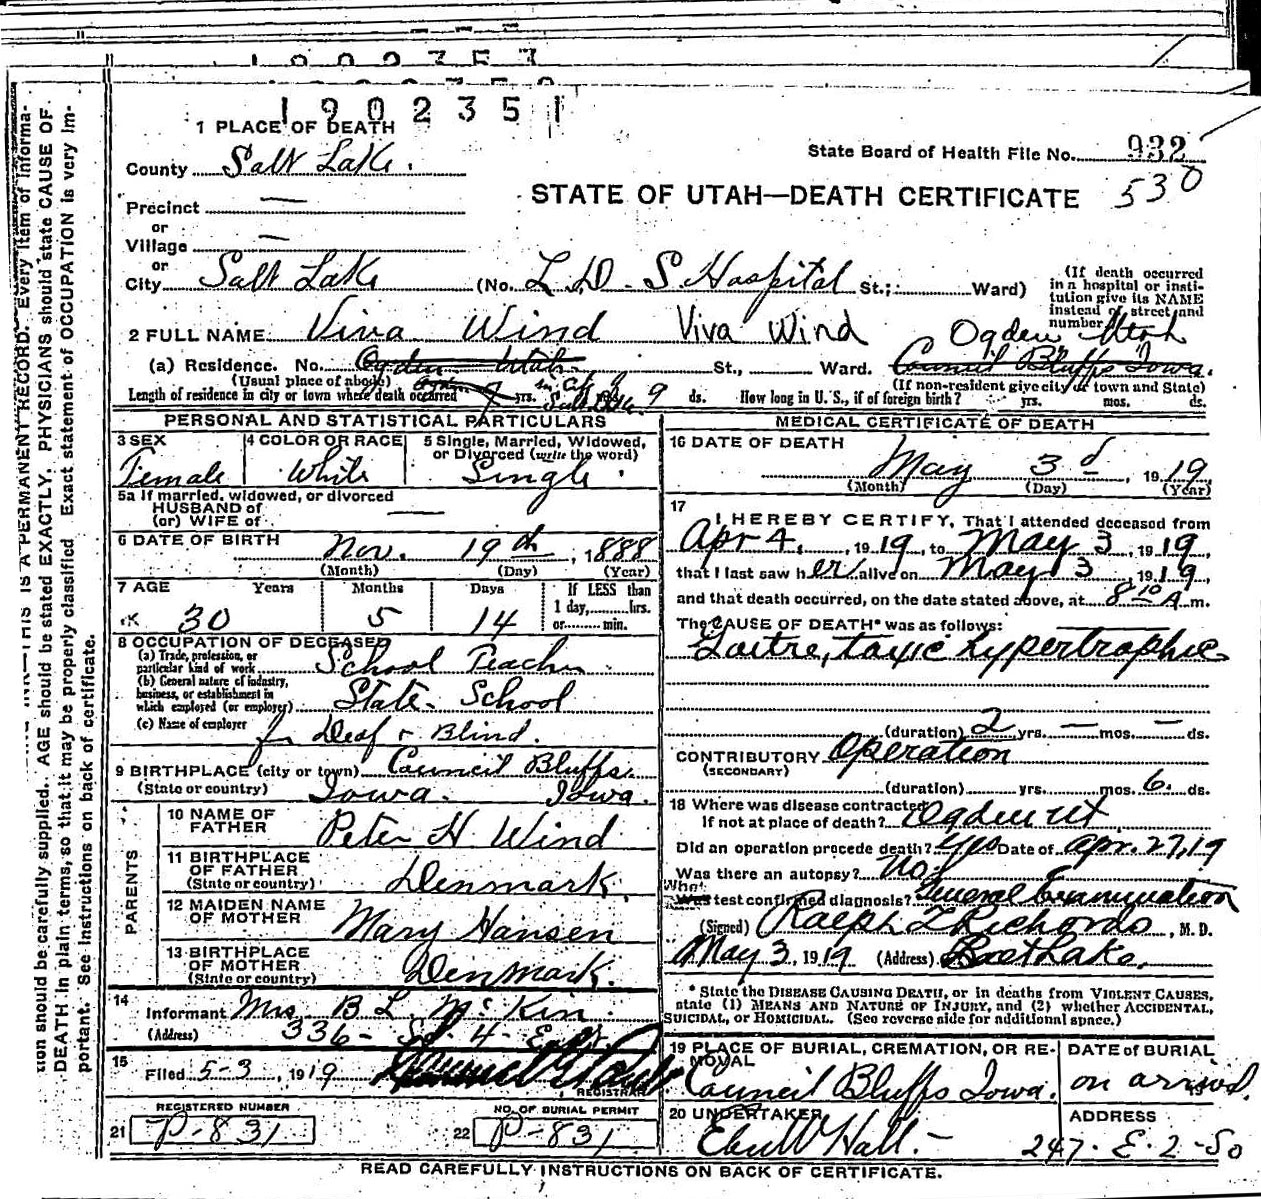 1902351
1 PLACE OF DEATH
County Salt Lake.
State Board of Health File No. 932
530
STATE OF UTAH—DEATH CERTIFICATE
Precinct —
or
Village —
or
City Salt Lake (No. L. D. S. Hospital St.; Ward)
(If death occurred in a hospital or institution give its NAME instead of street and number
2 FULL NAME Viva Wind Viva Wind
Ogden Utah
(a) Residence. No. Ogden Utah St., Ward. Council Bluffs Iowa.
(Usual place of abode) (If non-resident give city or town and State)
Length of residence in city or town where death occurred yrs. 9 ds. How long in U. S., if of foreign birth? yrs. mos. ds.
PERSONAL AND STATISTICAL PARTICULARS
3 SEX Female
4 COLOR OR RACE White
5 Single, Married, Widowed, or Divorced (write the word) Single.
5a If married, widowed, or divorced
HUSBAND of
(or) WIFE of —
6 DATE OF BIRTH Nov. 19th, 1888
(Month) (Day) (Year)
7 AGE Years Months Days If LESS than
1 day, hrs.
or min.
30 5 14
8 OCCUPATION OF DECEASED
(a) Trade, profession, or particular kind of work School Teacher
(b) General nature of industry, business, or establishment in which employed (or employer) State School
(c) Name of employer for Deaf & Blind.
9 BIRTHPLACE (city or town) Council Bluffs.
(State or country) Iowa. Iowa.
PARENTS
10 NAME OF FATHER Peter H Wind
11 BIRTHPLACE OF FATHER (State or country) Denmark.
12 MAIDEN NAME OF MOTHER Mary Hansen
13 BIRTHPLACE OF MOTHER (State or country) Denmark.
14
Informant Mrs B L McKin.
(Address) 336 - So. 4 - East.
15
Filed 5-3, 1919
REGISTRAR
REGISTERED NUMBER
21 P-831
NO. OF BURIAL PERMIT
22 P-831
MEDICAL CERTIFICATE OF DEATH
16 DATE OF DEATH
May 3d, 1919
(Month) (Day) (Year)
17
I HEREBY CERTIFY, That I attended deceased from
Apr 4, 1919, to May 3, 1919,
that I last saw her alive on May 3 1919,
and that death occurred, on the date stated above, at 8 10 A m.
The CAUSE OF DEATH* was as follows:
Goitre, toxic hypertrophic
(duration) 2 yrs. — mos. — ds.
CONTRIBUTORY Operation
(SECONDARY)
(duration) yrs. mos. 6. ds.
18 Where was disease contracted
If not at place of death? Ogden Ut
Did an operation precede death? Yes Date of Apr. 27, 19
Was there an autopsy? No.
What test confirmed diagnosis? General Examination
(Signed) Ralph T Richards, M. D.
May 3, 1919 (Address) Salt Lake.
* State the DISEASE CAUSING DEATH, or in deaths from VIOLENT CAUSES,
state (1) MEANS AND NATURE OF INJURY, and (2) whether ACCIDENTAL,
SUICIDAL, or HOMICIDAL. (See reverse side for additional space.)
19 PLACE OF BURIAL, CREMATION, OR REMOVAL
Council Bluffs Iowa.
DATE of BURIAL
on arrival.
19
20 UNDERTAKER
Eber W Hall. -
ADDRESS
247. E. 2 - So
READ CAREFULLY INSTRUCTIONS ON BACK OF CERTIFICATE.
THIS IS A PERMANENT RECORD. Every item of informa-
tion should be carefully supplied. AGE should be stated EXACTLY. PHYSICIANS should state CAUSE OF
DEATH in plain terms, so that it may be properly classified. Exact statement of OCCUPATION is very im-
portant. See instructions on back of certificate.